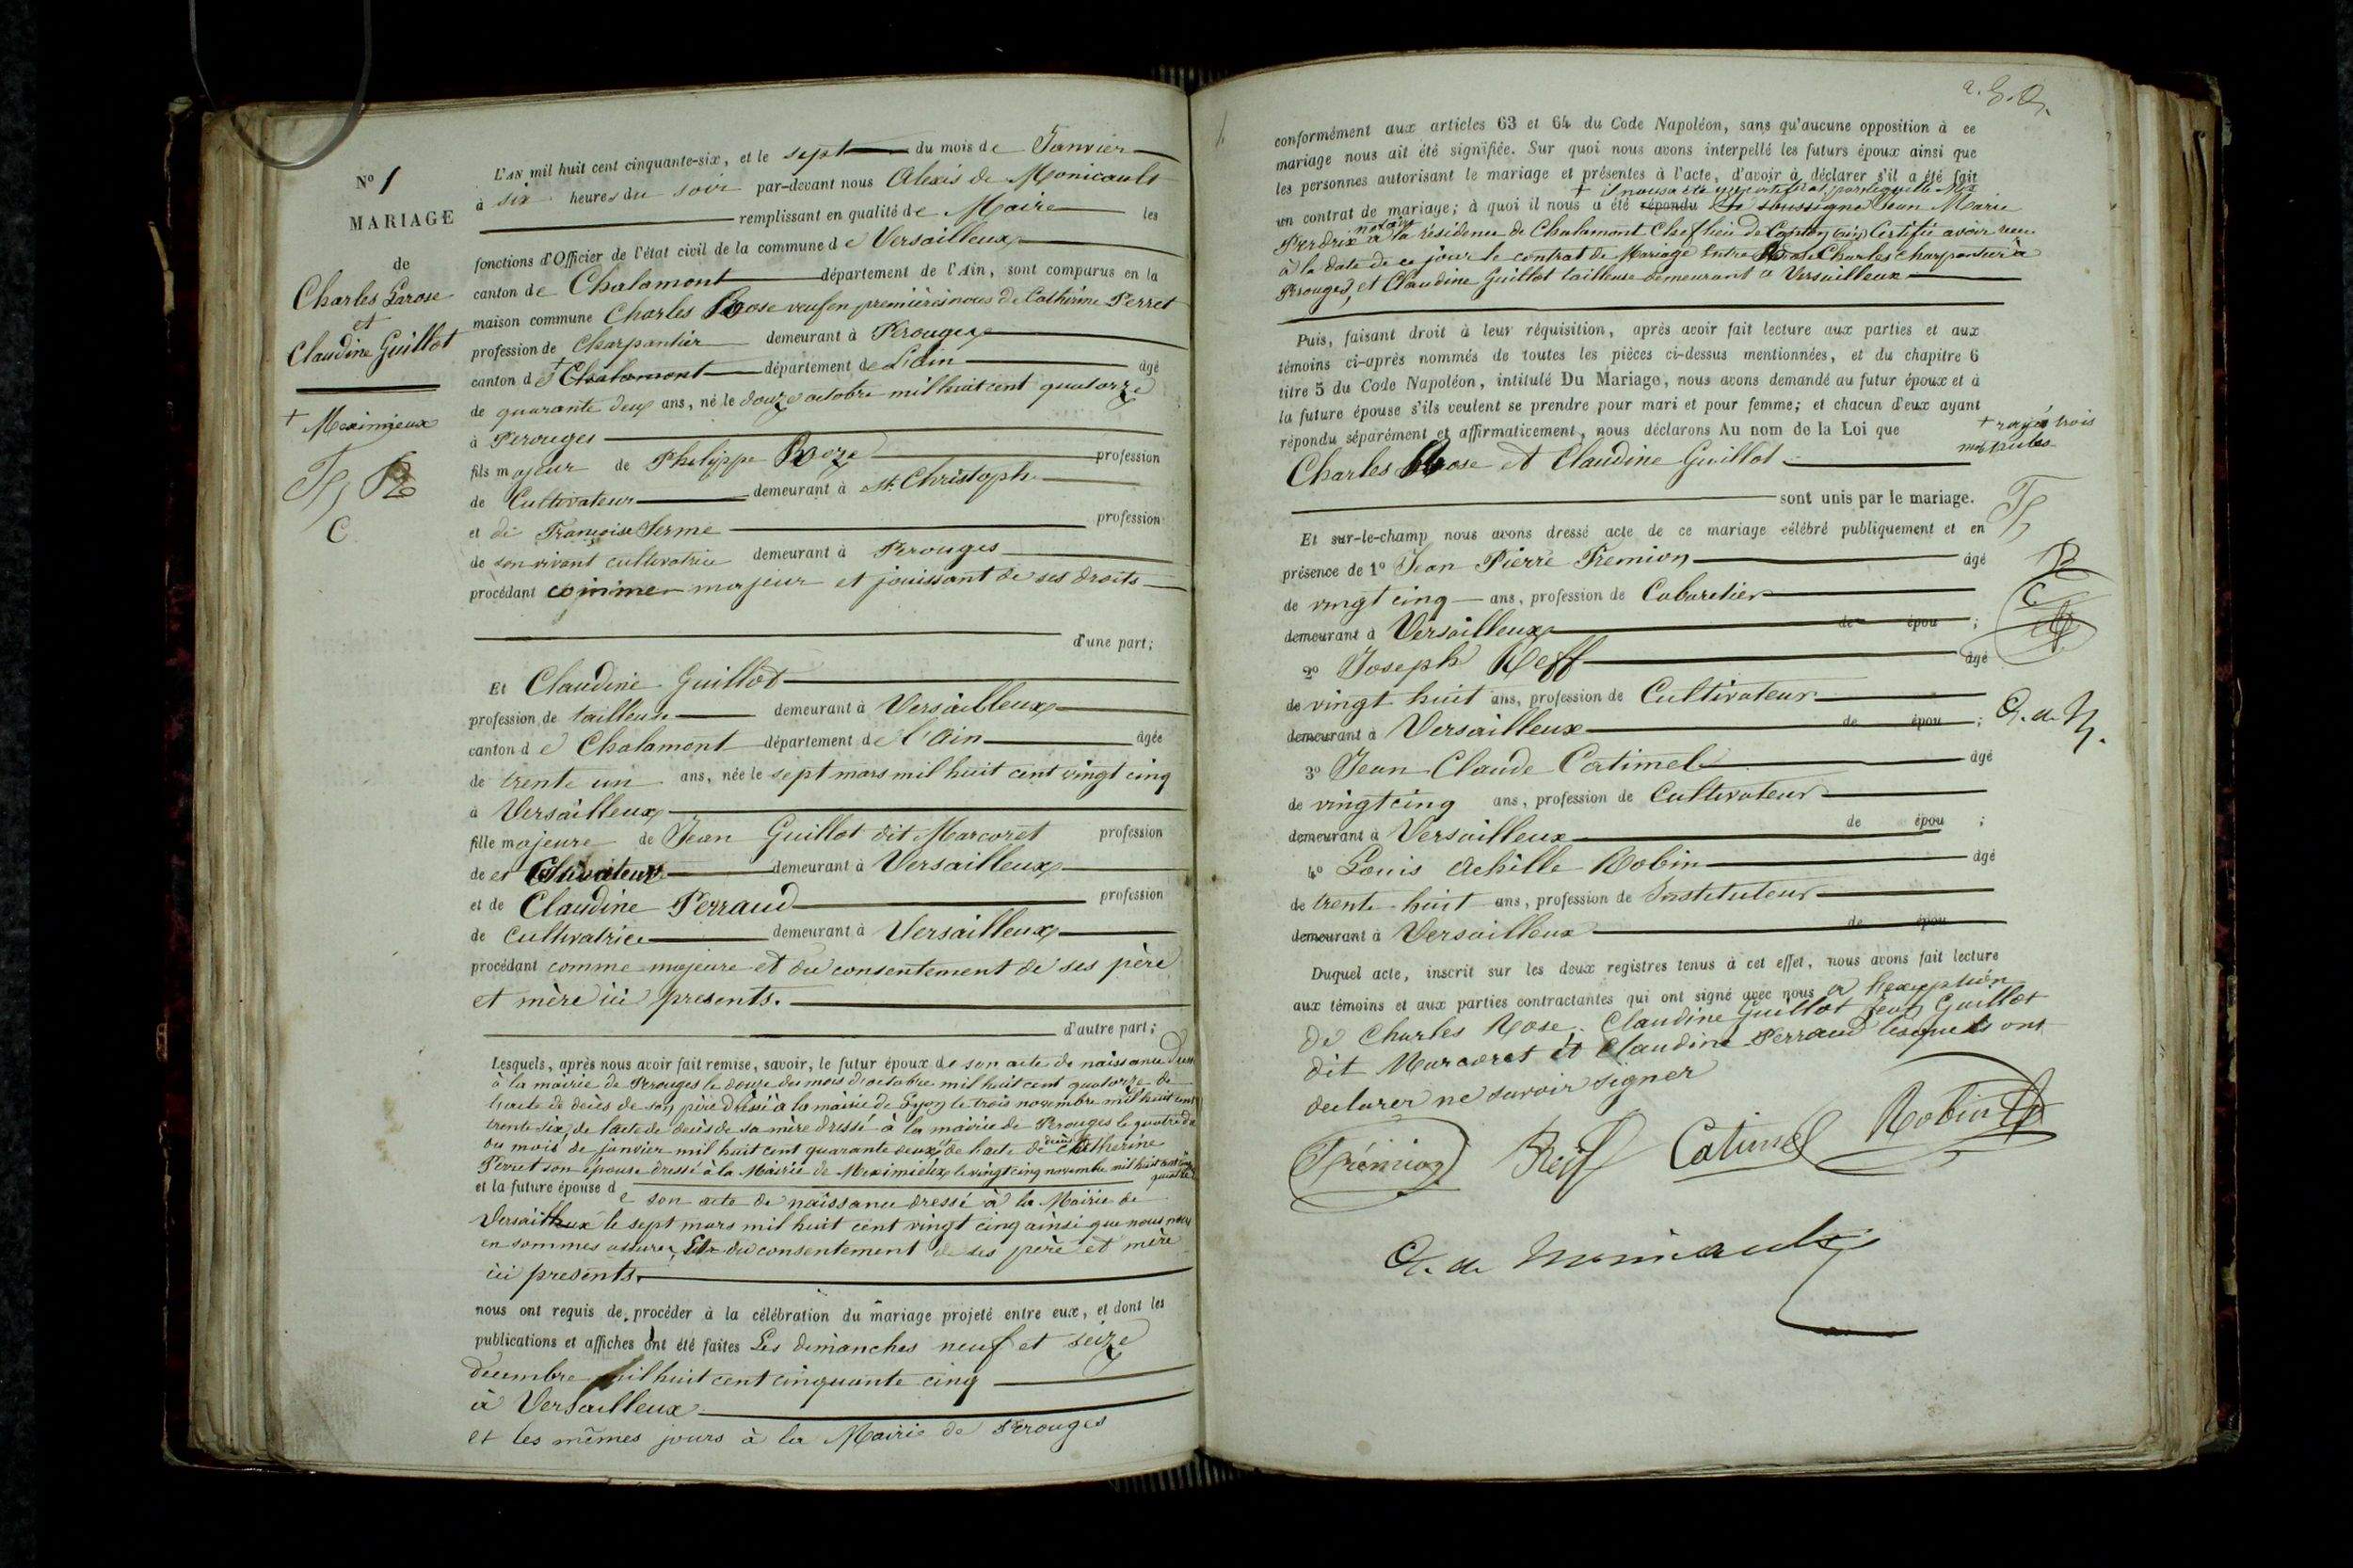 N° 1
MARIAGE
de
Charles Larose
et
Claudine Guillot
+ Meximieux
L'AN mil huit cent cinquante-six, et le sept du mois de Janvier
à six heures du soir par-devant nous Alexis de Monicault
remplissant en qualité de Maire les
fonctions d'Officier de l'état civil de la commune de Versailleux
canton de Chalamont département de l'Ain, sont comparus en la
maison commune Charles Rose veuf en premières noces de Catherine Perret
profession de Charpentier demeurant à Pérouges
canton de + Chalamont département de L'ain âgé
de quarante deux ans, né le douze octobre mil huit cent quatorze
à Perouges
fils majeur de Philippe Roze profession
de Cultivateur demeurant à St. Christophe
et de Françoise Serme profession
de son vivant cultivatrice demeurant à Perouges
procédant comme majeur et jouissant de ses droits
d'une part;
Et Claudine Guillot
profession de tailleuse demeurant à Versailleux
canton de Chalamont département de l'Ain âgée
de trente un ans, née le sept mars mil huit cent vingt cinq
à Versailleux
fille majeure de Jean Guillot dit Marcoret profession
de Cultivateur demeurant à Versailleux
et de Claudine Perraud profession
de cultivatrice demeurant à Versailleux
procédant comme majeure et du consentement de ses père
et mère ici presents.
d'autre part;
Lesquels, après nous avoir fait remise, savoir, le futur époux de son acte de naissance
à la mairie de Perouges le douze du mois d'octobre mil huit cent quatorze de
l'acte de décès de son père dressé à la mairie de Lyon le trois novembre mil huit cent
trente six, de l'acte de décès de sa mère dressé à la mairie de Perouges le quatre
du mois de janvier mil huit cent quarante deux, et de l'acte de décès de Catherine
Perret son épouse dressé à la Mairie de Meximieux le vingt cinq novembre mil huit cent
et la future épouse de son acte de naissance dressé à la Mairie de
Versailleux le sept mars mil huit cent vingt cinq ainsi que nous nous
en sommes assurés, Et du consentement de ses père et mère
ici presents,
nous ont requis de procéder à la célébration du mariage projeté entre eux, et dont les
publications et affiches ont été faites Les dimanches neuf et seize
décembre mil huit cent cinquante cinq
à Versailleux
et les mêmes jours à la Mairie de Perouges
conformément aux articles 63 et 64 du Code Napoléon, sans qu'aucune opposition à ce
mariage nous ait été signifiée. Sur quoi nous avons interpellé les futurs époux ainsi que
les personnes autorisant le mariage et présentes à l'acte, d'avoir à déclarer s'il a été fait
un contrat de mariage; à quoi il nous a été répondu soussigné Jean Marie
Perdrix notaire à la résidence de Chalamont Chef lieu de Canton (ain) Certifie avoir reçu
à la date de ce jour le contrat de Mariage entre Rose Charles charpentier à
Perouges, et Claudine Guillot tailleuse demeurant à Versailleux
Puis, faisant droit à leur réquisition, après avoir fait lecture aux parties et aux
témoins ci-après nommés de toutes les pièces ci-dessus mentionnées, et du chapitre 6
titre 5 du Code Napoléon, intitulé Du Mariage, nous avons demandé au futur époux et à
la future épouse s'ils veulent se prendre pour mari et pour femme; et chacun d'eux ayant
répondu séparément et affirmativement, nous déclarons Au nom de la Loi que
+ rayés trois
mots nuls
Charles Rose et Claudine Guillot
sont unis par le mariage.
Et sur-le-champ nous avons dressé acte de ce mariage célébré publiquement et en
présence de 1° Jean Pierre Fremion âgé
de vingt cinq ans, profession de Cabaretier
demeurant à Versailleux de épou ;
2° Joseph Reff âgé
de vingt huit ans, profession de Cultivateur
demeurant à Versailleux de épou ;
3° Jean Claude Catimel âgé
de vingt cinq ans, profession de Cultivateur
demeurant à Versailleux de épou ;
4° Louis Achille Robin âgé
de trente huit ans, profession de Instituteur
demeurant à Versailleux de épou
Duquel acte, inscrit sur les deux registres tenus à cet effet, nous avons fait lecture
aux témoins et aux parties contractantes qui ont signé avec nous à l'exception
de Charles Rose. Claudine Guillot Jean Guillot
dit Marcoret et Claudine Perraud lesquels ont
declarer ne savoir signer
Frémion Reff Catimel Robin
A. de Monicault